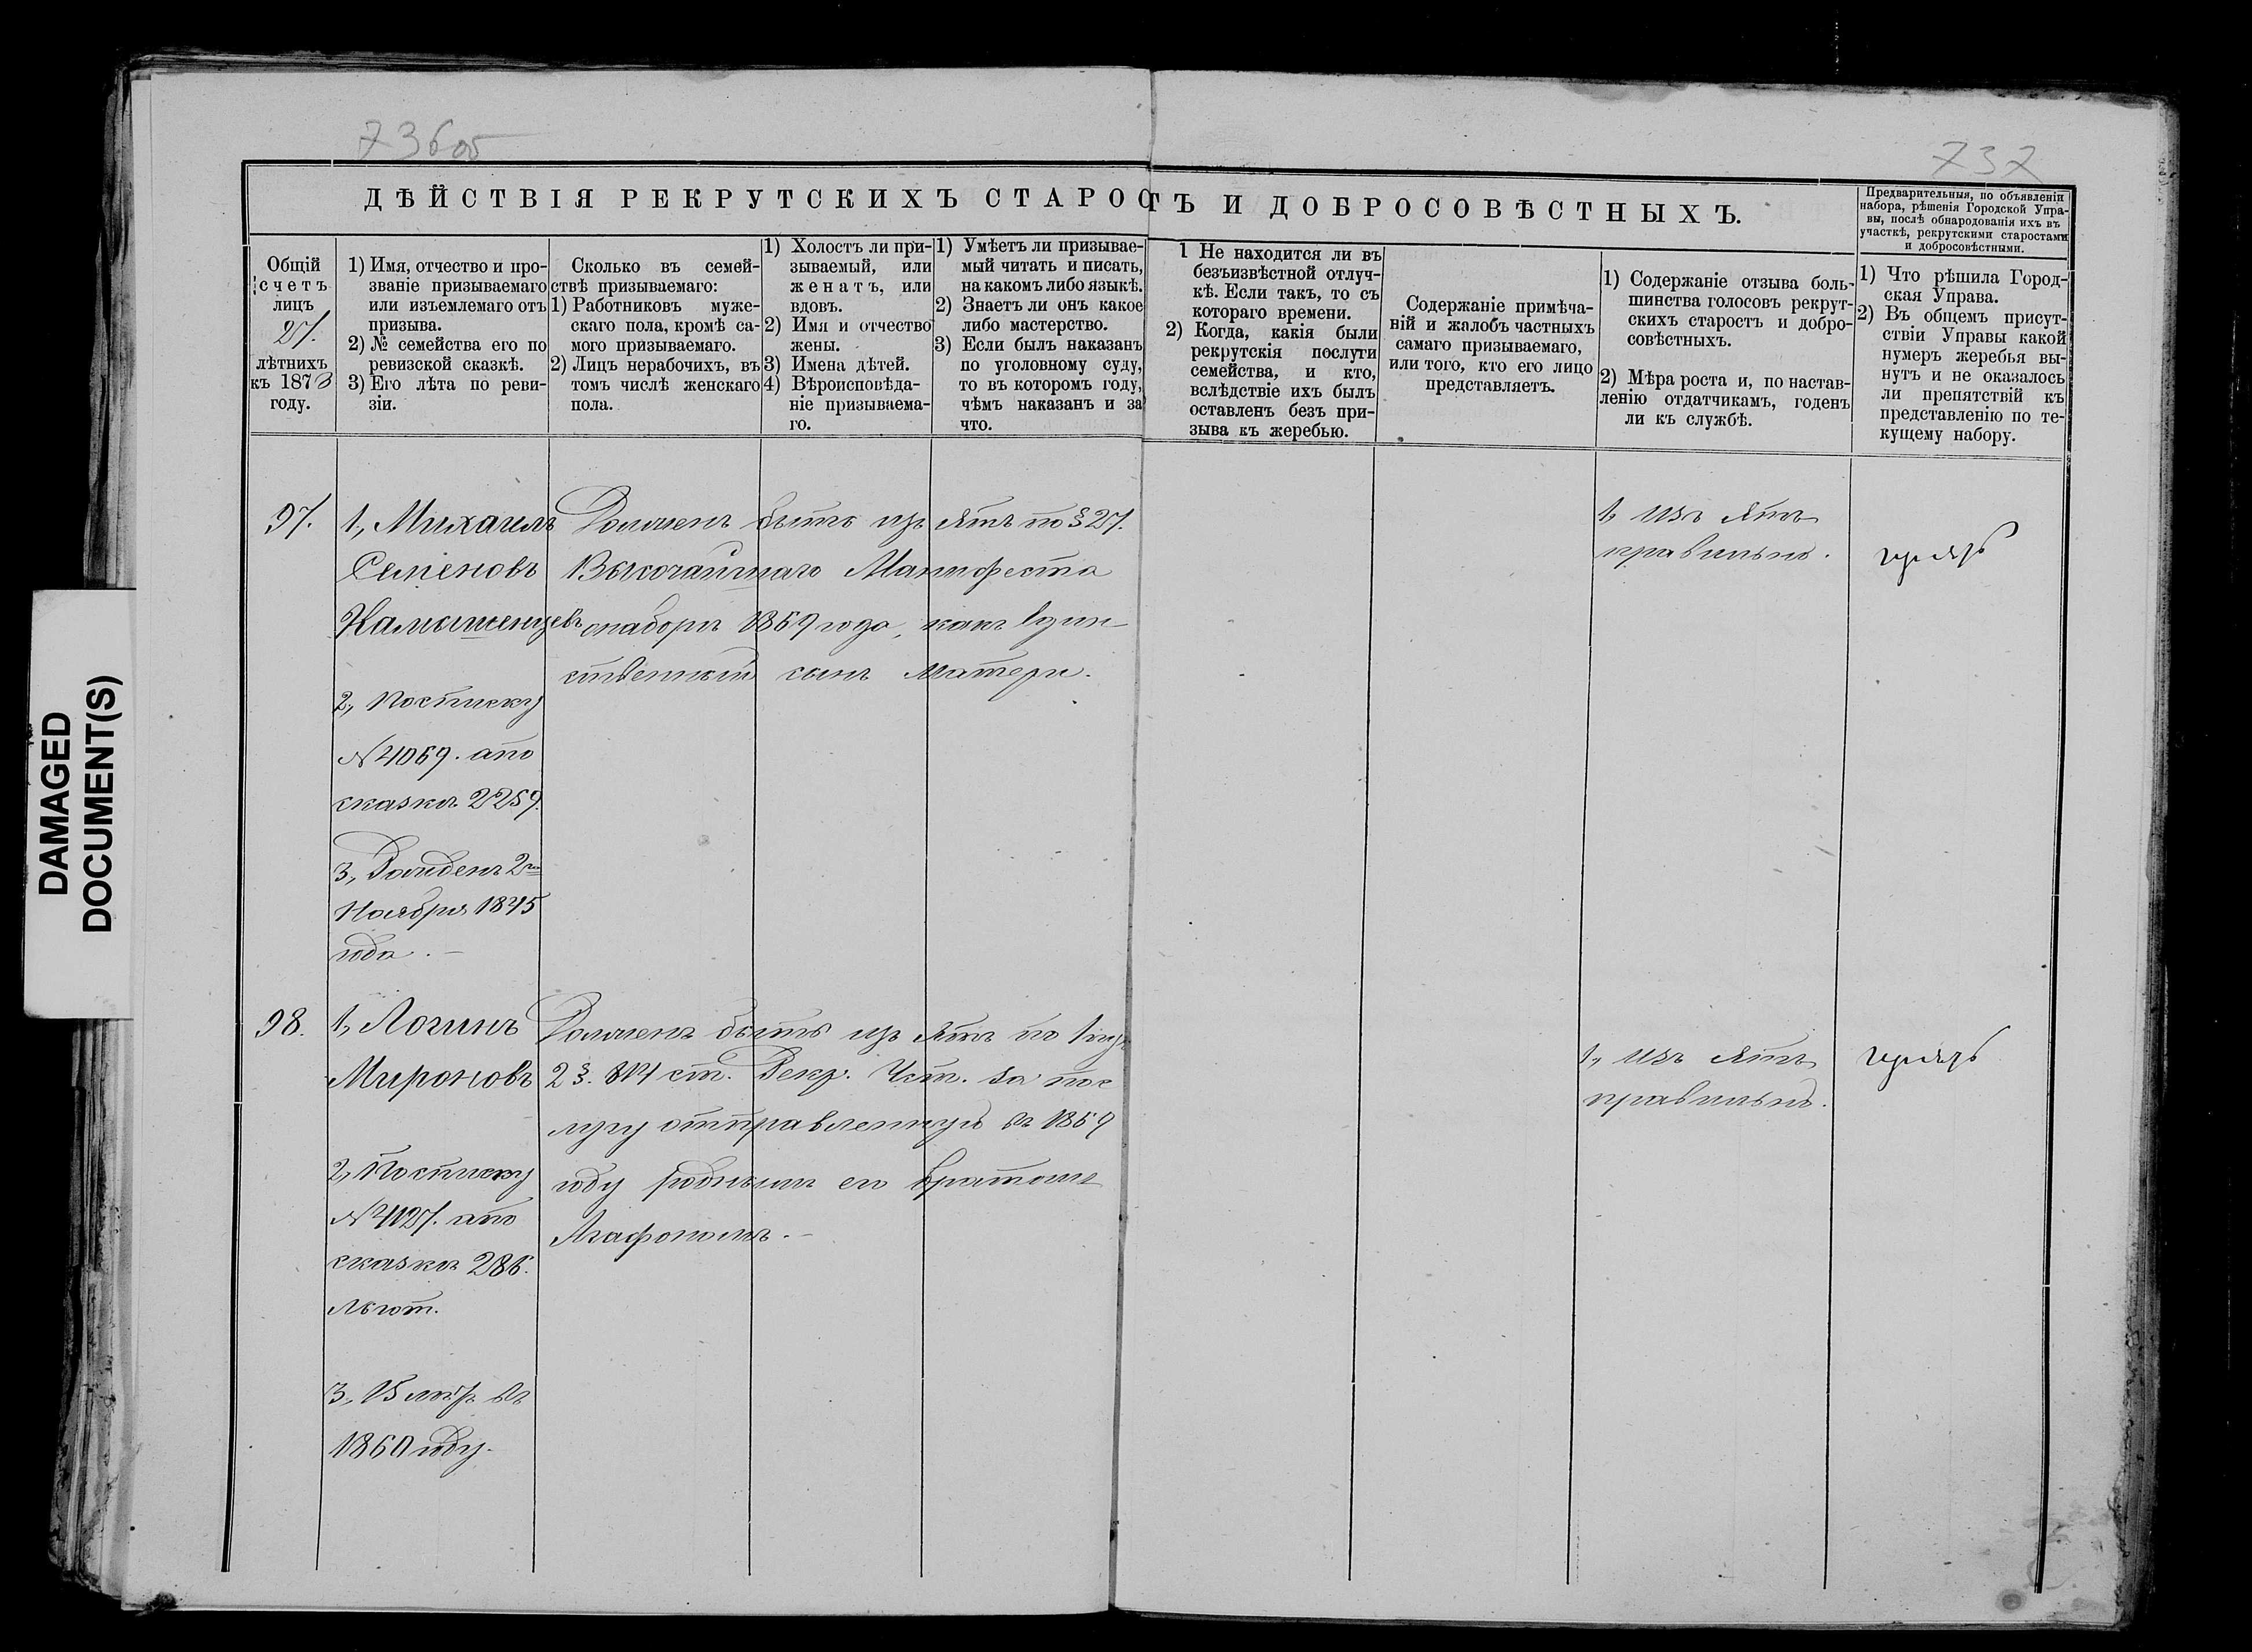 736 об
737
ДѢЙСТВІЯ РЕКРУТСКИХЪ СТАРОСТЪ И ДОБРОСОВѢСТНЫХЪ.
Предварительныя, по объявленіи
набора, рѣшенія Городской Упра-
вы, послѣ обнародованія ихъ въ
участкѣ, рекрутскими старостами
и добросовѣстными.
Общій
счетъ
лицъ
27.
лѣтнихъ
къ 1873
году.
1) Имя, отчество и про-
званіе призываемаго
или изъемлемаго отъ
призыва.
2) № семейства его по
ревизской сказкѣ.
3) Его лѣта по реви-
зіи.
Сколько въ семей-
ствѣ призываемаго:
1) Работниковъ муже-
скаго пола, кромѣ са-
мого призываемаго.
2) Лицъ нерабочихъ, въ
томъ числѣ женскаго
пола.
1) Холостъ ли при-
зываемый, или
женатъ, или
вдовъ.
2) Имя и отчество
жены.
3) Имена дѣтей.
4) Вѣроисповѣда-
ніе призываема-
го.
1) Умѣетъ ли призывае-
мый читать и писать,
на какомъ либо языкѣ.
2) Знаетъ ли онъ какое
либо мастерство.
3) Если былъ наказанъ
по уголовному суду,
то въ которомъ году,
чѣмъ наказанъ и за
что.
1 Не находится ли въ
безъизвѣстной отлуч-
кѣ. Если такъ, то съ
котораго времени.
2) Когда, какія были
рекрутскія послуги
семейства, и кто,
вслѣдствіе ихъ былъ
оставленъ безъ при-
зыва къ жеребью.
Содержаніе примѣча-
ній и жалобъ частныхъ
самаго призываемаго,
или того, кто его лицо
представляетъ.
1) Содержаніе отзыва боль-
шинства голосовъ рекрут-
скихъ старостъ и добро-
совѣстныхъ.
2) Мѣра роста и, по настав-
ленію отдатчикамъ, годенъ
ли къ службѣ.
1) Что рѣшила Город-
ская Управа.
2) Въ общемъ присут-
ствіи Управы какой
нумеръ жеребья вы-
нутъ и не оказалось
ли препятствій къ
представленію по те-
кущему набору.
97.
1, Михаилъ
Семеновъ
Камышенцевъ
2, по списку
№ 4069. а по
сказкѣ 2259.
3, Рожденъ 2го
Ноября 1845
года.
Долженъ быть изъ ятъ по § 27.
Высочайшаго Манифеста
о наборѣ 1869 года, какъ един-
ственный сынъ матери.
1, изъ ятъ
правильно.
98.
1, Логинъ
Мироновъ
2, По списку
№ 4127. а по
сказкѣ 286.
льгот.
3, 15 лѣтъ въ
1860 году.
Долженъ быть изъ ятъ по 1 пу.
2 §. 814 ст. Рекр. Уст. за пос
лугу отправленную въ 1859
году роднымъ его братомъ
Агафономъ.
1, изъ ятъ
правильно.
DAMAGED
DOCUMENT(S)